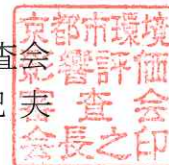 査会
夫
京都市環境
影響評価
審査会
会長之印